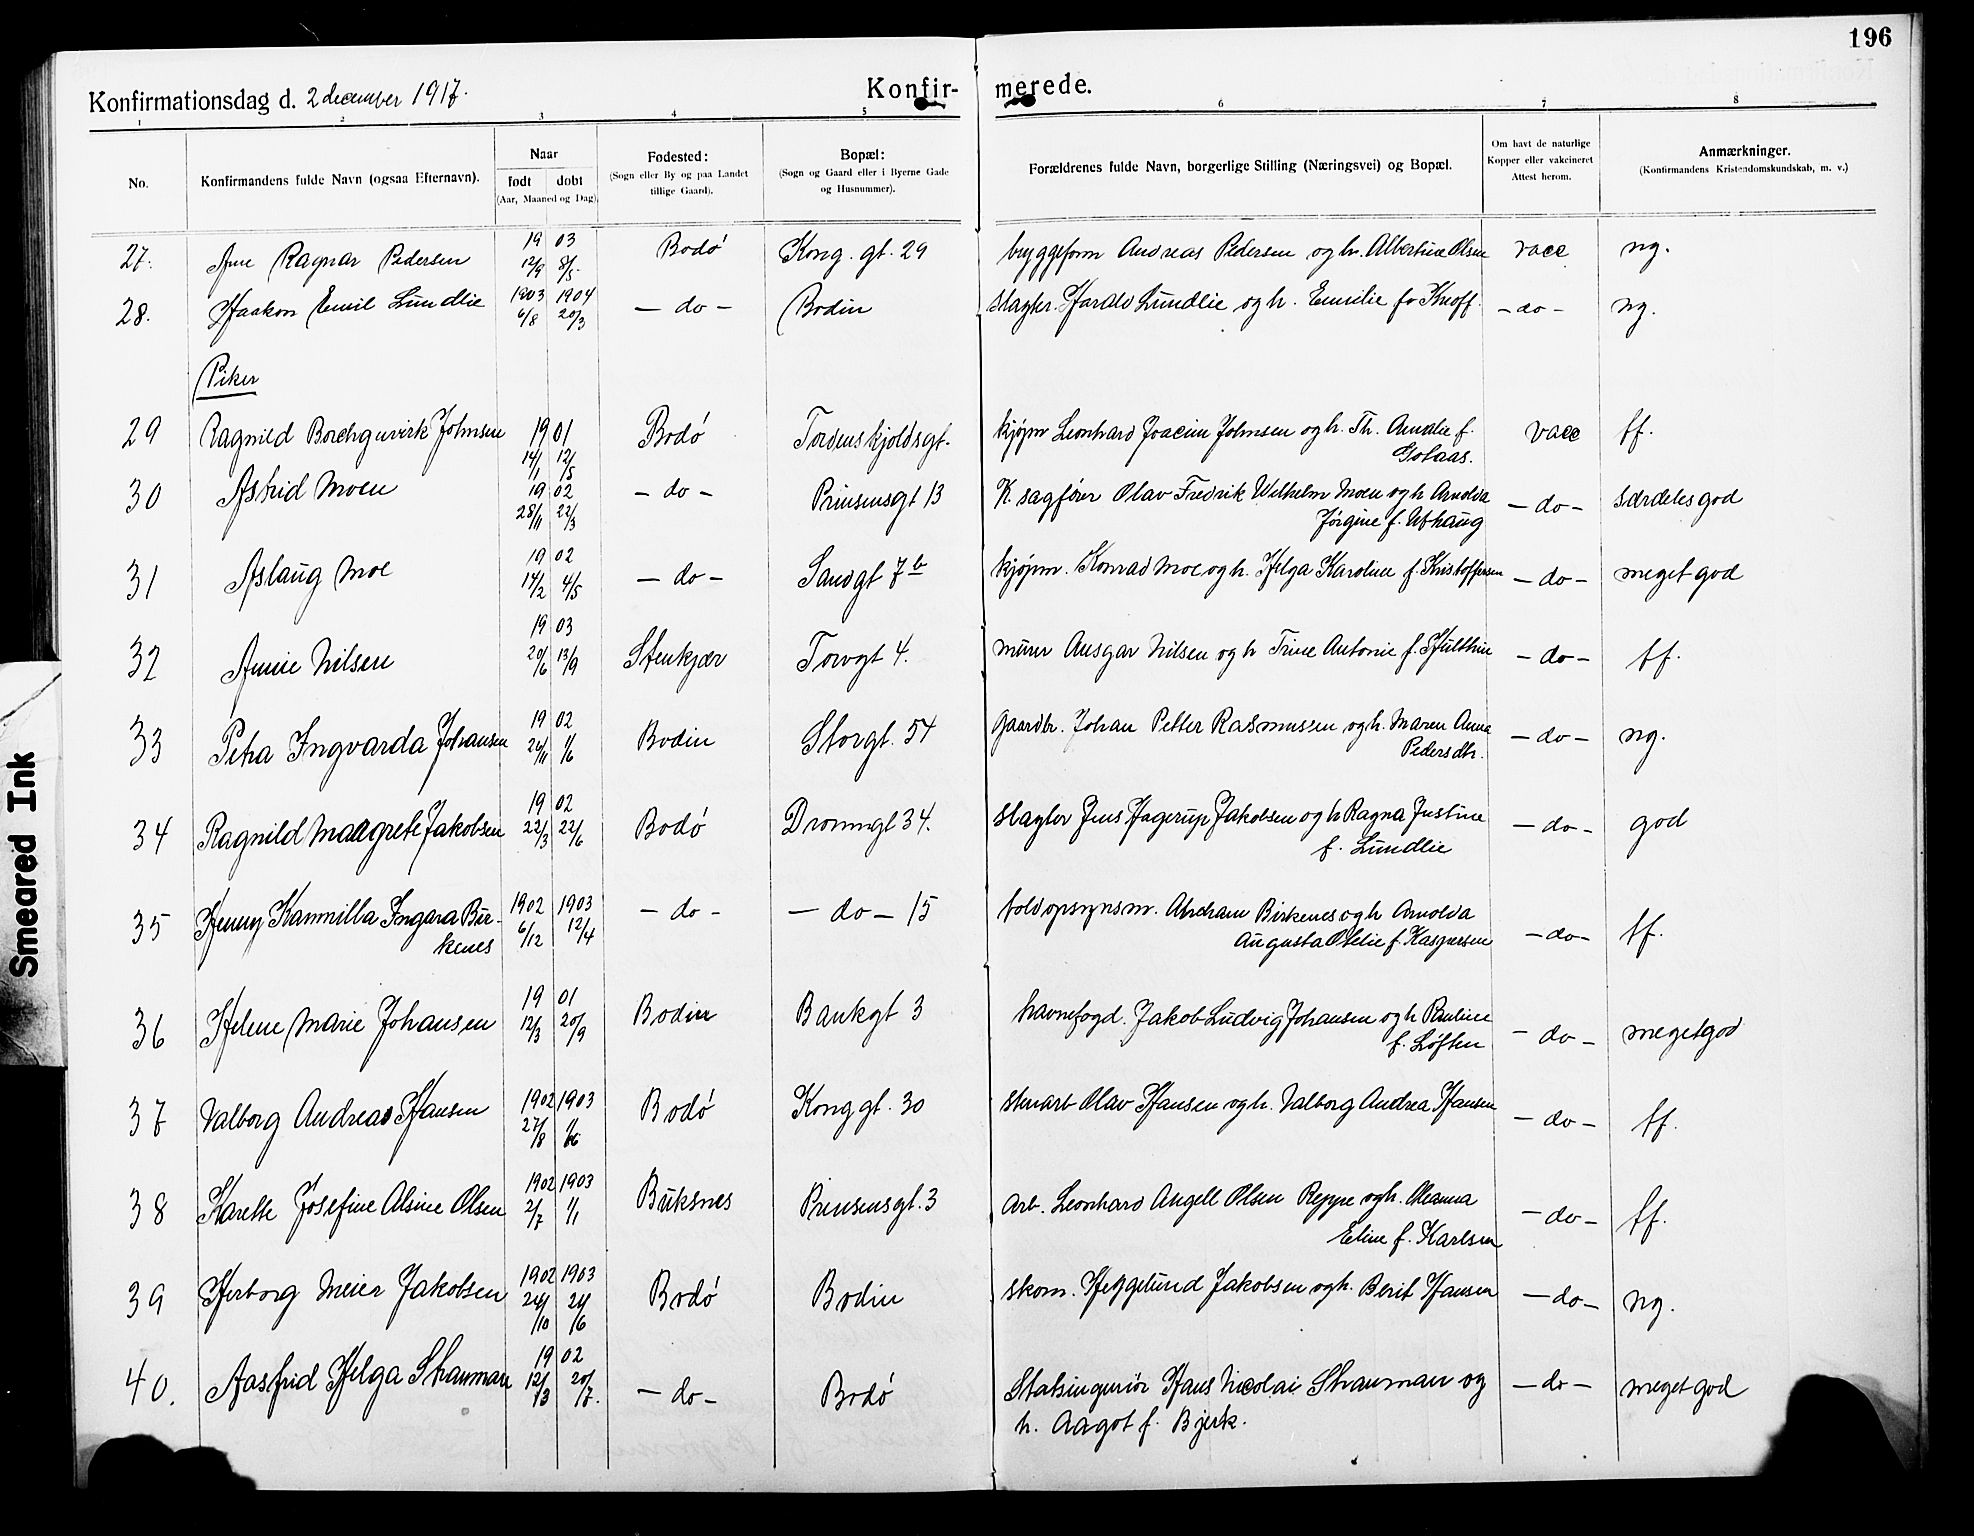 196
Konfirmationsdag d. 2 december 1917.
Konfir- merede.
1 2 3 4 5 6 7 8
No.
Konfirmandens fulde Navn (ogsaa Efternavn).
Naar
født døbt
(Aar, Maaned og Dag).
Fødested:
(Sogn eller By og paa Landet
tillige Gaard).
Bopæl:
(Sogn og Gaard eller i Byerne Gade
og Husnummer).
Forældrenes fulde Navn, borgerlige Stilling (Næringsvei) og Bopæl.
Om havt de naturlige
Kopper eller vakcineret
Attest herom.
Anmærkninger.
(Konfirmandens Kristendomskundskab, m. v.)
27. Arne Ragnar Pedersen 19 03 12/9 8/5 Bodø Kong. gt. 29 bryggeform Andreas Pedersen og h. Albertine Olsen vacc ng.
28. Haakon Emil Lundlie 1903 1904 6/8 20/3 - do - Bodin slagter. Harald Lundlie og h. Emilie f. Knoff - do - ng.
Piker
29 Ragnild Borchgrevink Johnsen 19 01 14/1 12/5 Bodø Tordenskjoldsgt. kjøpm Leonhard Joacim Johnsen og h. Th. Amalie f.
Golaas. vacc tf.
30 Astrid Moen 19 02 28/11 22/3 - do - Prinsensgt 13 K. sagfører Olav Fredrik Wilhelm Moen og h Arnolda
Jørgine f. Uthaug - do - særdeles god
31 Aslaug Moe 19 02 14/2 4/5 - do - Sandgt 7b kjøpm. Konrad Moe og h. Helga Karoline f. Kristoffersen - do - meget god
32 Annie Nilsen 19 03 20/6 13/9 Stenkjær Torvgt 4. murer Ansgar Nilsen og h Trine Antonie f. Hulthin - do - tf.
33 Petra Ingvarda Johansen 19 02 26/11 1/6 Bodin Storgt. 54 Gaardbr. Johan Petter Rasmussen og h. Maren Anna
Pedersdtr. - do - ng.
34 Ragnild Margrete Jakobsen 19 02 22/3 22/6 Bodø Dronningt 34. slagter Jens Hagerup Jakobsen og h Ragna Justine
f. Lundlie - do - god
35 Henny Kammilla Ingara Bir-
kenes 1902 1903 6/12 12/4 - do - - do - 15 toldopsynsm. Abraham Birkenes og h Arnolda
Augusta Otelie f. Kaspersen - do - tf.
36 Helene Marie Johansen 19 01 12/3 20/9 Bodin Bankgt 3 havnefogd. Jakob Ludvig Johansen og h Pauline
f. Løften - do - meget god
37 Valborg Andreas Hansen 1902 1903 27/8 1/6 Bodø Kong gt. 30 stuart Olav Hansen og h. Valborg Andrea Hansen - do - tf.
38 Karette Josefine Alsine Olsen 1902 1903 2/7 1/1 Buksnes Prinsensgt. 3 arb. Leonhard Angell Olsen Reppe og h. Oleanna
Eline f. Karlsen - do - tf.
39 Herborg Meier Jakobsen 1902 1903 24/10 21/6 Bodø Bodin skom. Heggelund Jakobsen og h. Berit Hansen - do - ng.
40. Aasfrid Helga Schanman 19 02 12/3 20/7. - do - Bodø Statsingeniør Hans Nicolai Schanman og
h. Aagot f. Bjerk. - do - meget god
Smeared Ink